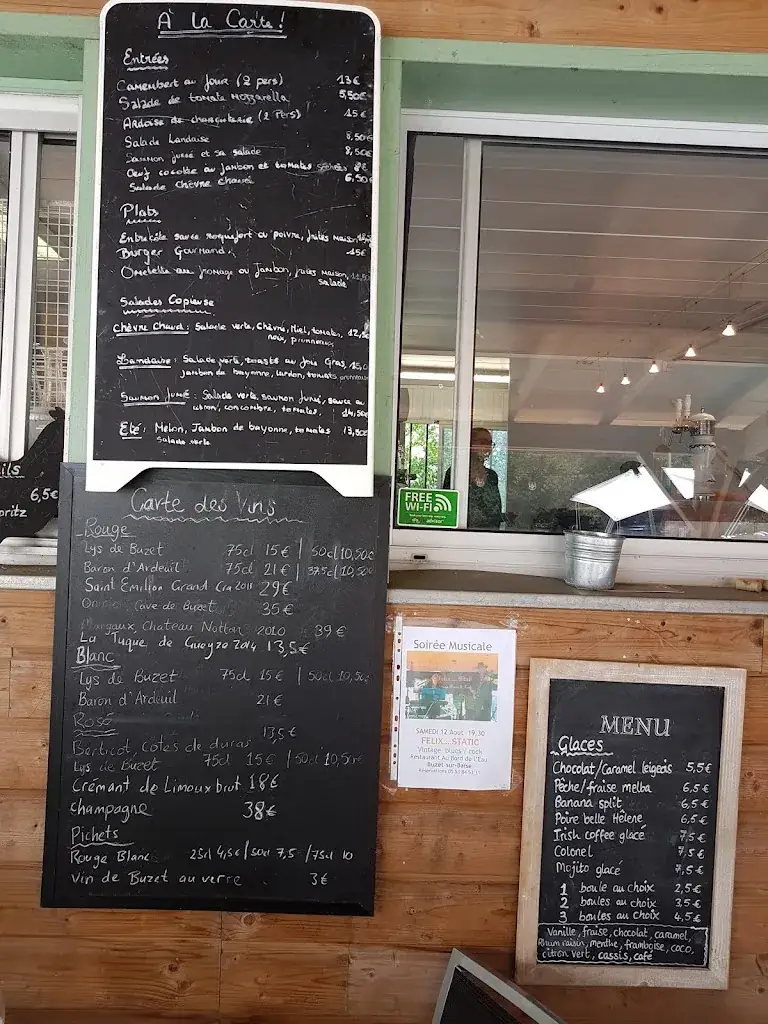 À la Carte!
Entrées
Camembert au four (2 pers) 13€
Salade de tomate Mozzarella 5,50€
Ardoise de charcuterie (2 Pers) 15€
Salade Landaise 8,50€
Saumon fumé et sa salade 8,50€
Oeuf cocotte au jambon et tomates séchées 8€
Salade chèvre chaud 6,50€
Plats
Entrecôte sauce roquefort ou poivre, frites maison,
Burger Gourmand. 15€
Omelette au fromage ou Jambon, frites maison,
salade
Salades Copieuse
Chèvre Chaud: Salade verte, Chèvre, Miel, tomates,
noix, pruneaux
Landaise: Salade verte, toasté au fois Gras,
jambon de bayonne, lardon, tomate pruneaux
Saumon fumé: Salade verte, saumon fumé, sauce au
citron, concombre, tomates, 14,50€
Eté: Melon, Jambon de bayonne, tomates 13,50€
Salade verte
6,5€
Carte des Vins
Rouge
Lys de Buzet 75cl 15€ | 50cl 10,50€
Baron d'Ardeuil 75cl 21€ | 37,5cl 10,50€
Saint Emilion Grand Cru 2011 29€
Cave de Buzet 35€
Margaux, Chateau Notton 2010 39€
La Tuque de Gueyze 2014 13,5€
Blanc
Lys de Buzet 75cl 15€ | 50cl 10,50€
Baron d'Ardeuil 21€
Rosé
13,5€
Berticot, Côtes de duras
Lys de Buzet 75cl 15€ | 50cl 10,50€
Crémant de Limoux brut 18€
Champagne 38€
Pichets
Rouge Blanc 25cl 4,5€ / 50cl 7,5 / 75cl 10
Vin de Buzet au verre 3€
FREE
WI-FI
Soirée Musicale
SAMEDI 12 Aout 19.30
FELIX... STATIC
Vintage blues / rock
Restaurant Au Bord de l'Eau
Buzet-sur-Baïse
MENU
Glaces
Chocolat/Caramel leigeois 5,5€
Pêche/fraise melba 6,5€
Banana split 6,5€
Poire belle Hélène 6,5€
Irish coffee glacé 7,5€
Colonel 7,5€
Mojito glacé 7,5€
1 boule au choix 2,5€
2 boules au choix 3,5€
3 boules au choix 4,5€
Vanille, fraise, chocolat, caramel,
Rhum raisin, menthe, framboise, coco,
citron vert, cassis, café